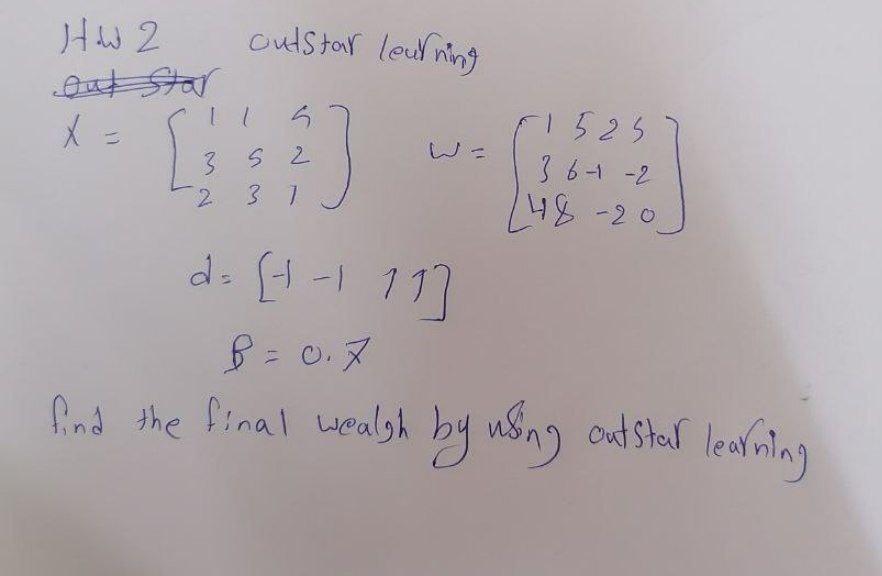 HW 2 outstar learning
out star
X = [1 1 5
3 5 2
2 3 1]
W = [1 5 2 5
3 6 -1 -2
4 8 -2 0]
d = [-1 -1 1 1]
β = 0.7
find the final wealgh by using outstar learning